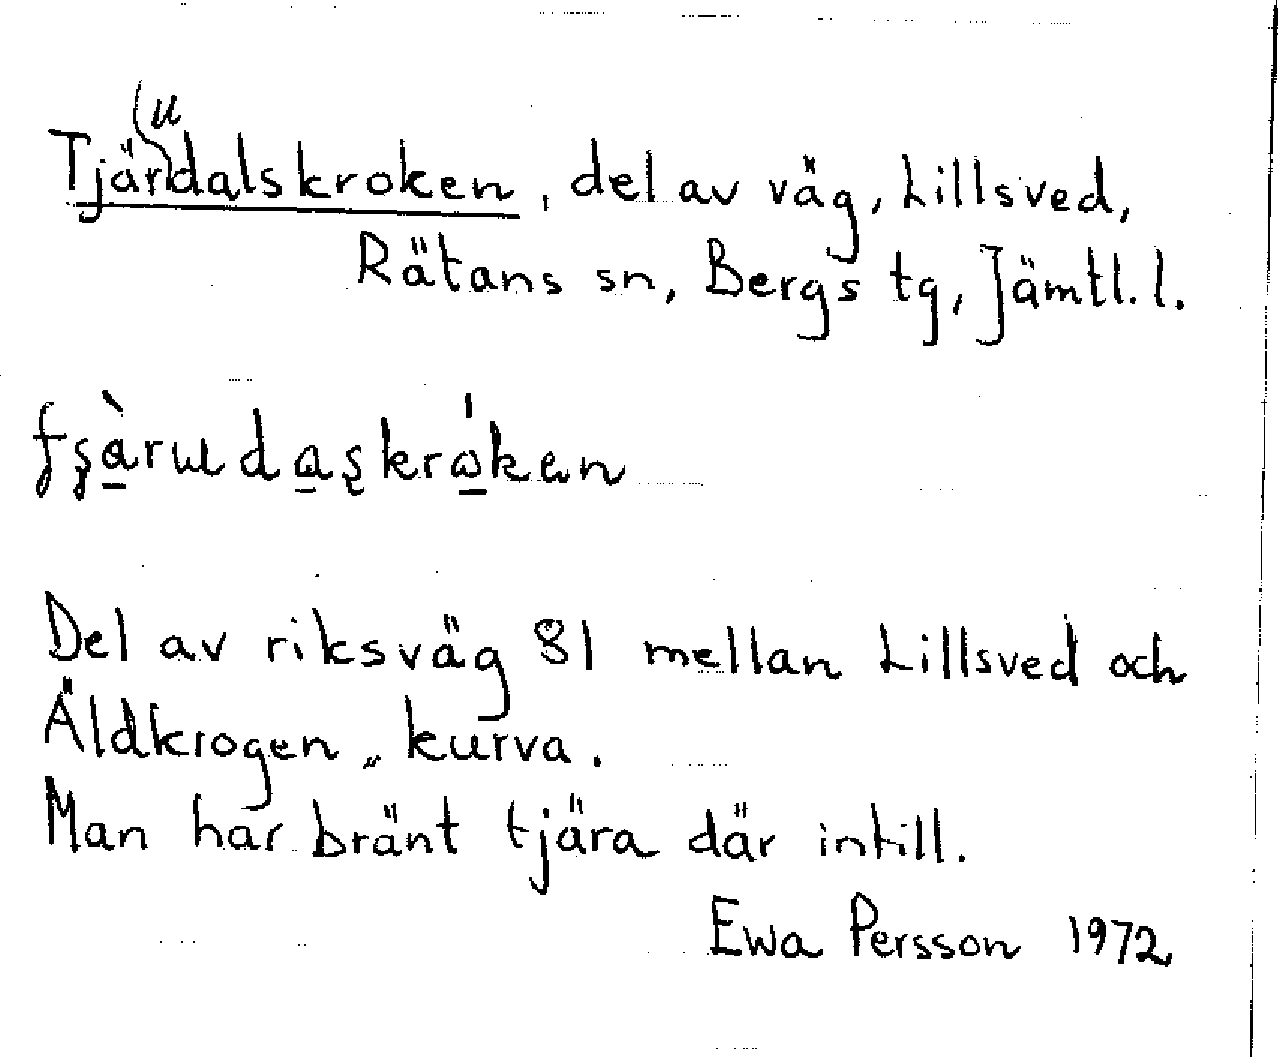 Tjärudalskroken, del av väg, Lillsved,
Rätans sn, Bergs tg, Jämtl. l.
Del av riksväg 81 mellan Lillsved och
Äldkrogen, kurva.
Man har bränt tjära där intill.
Ewa Persson 1972